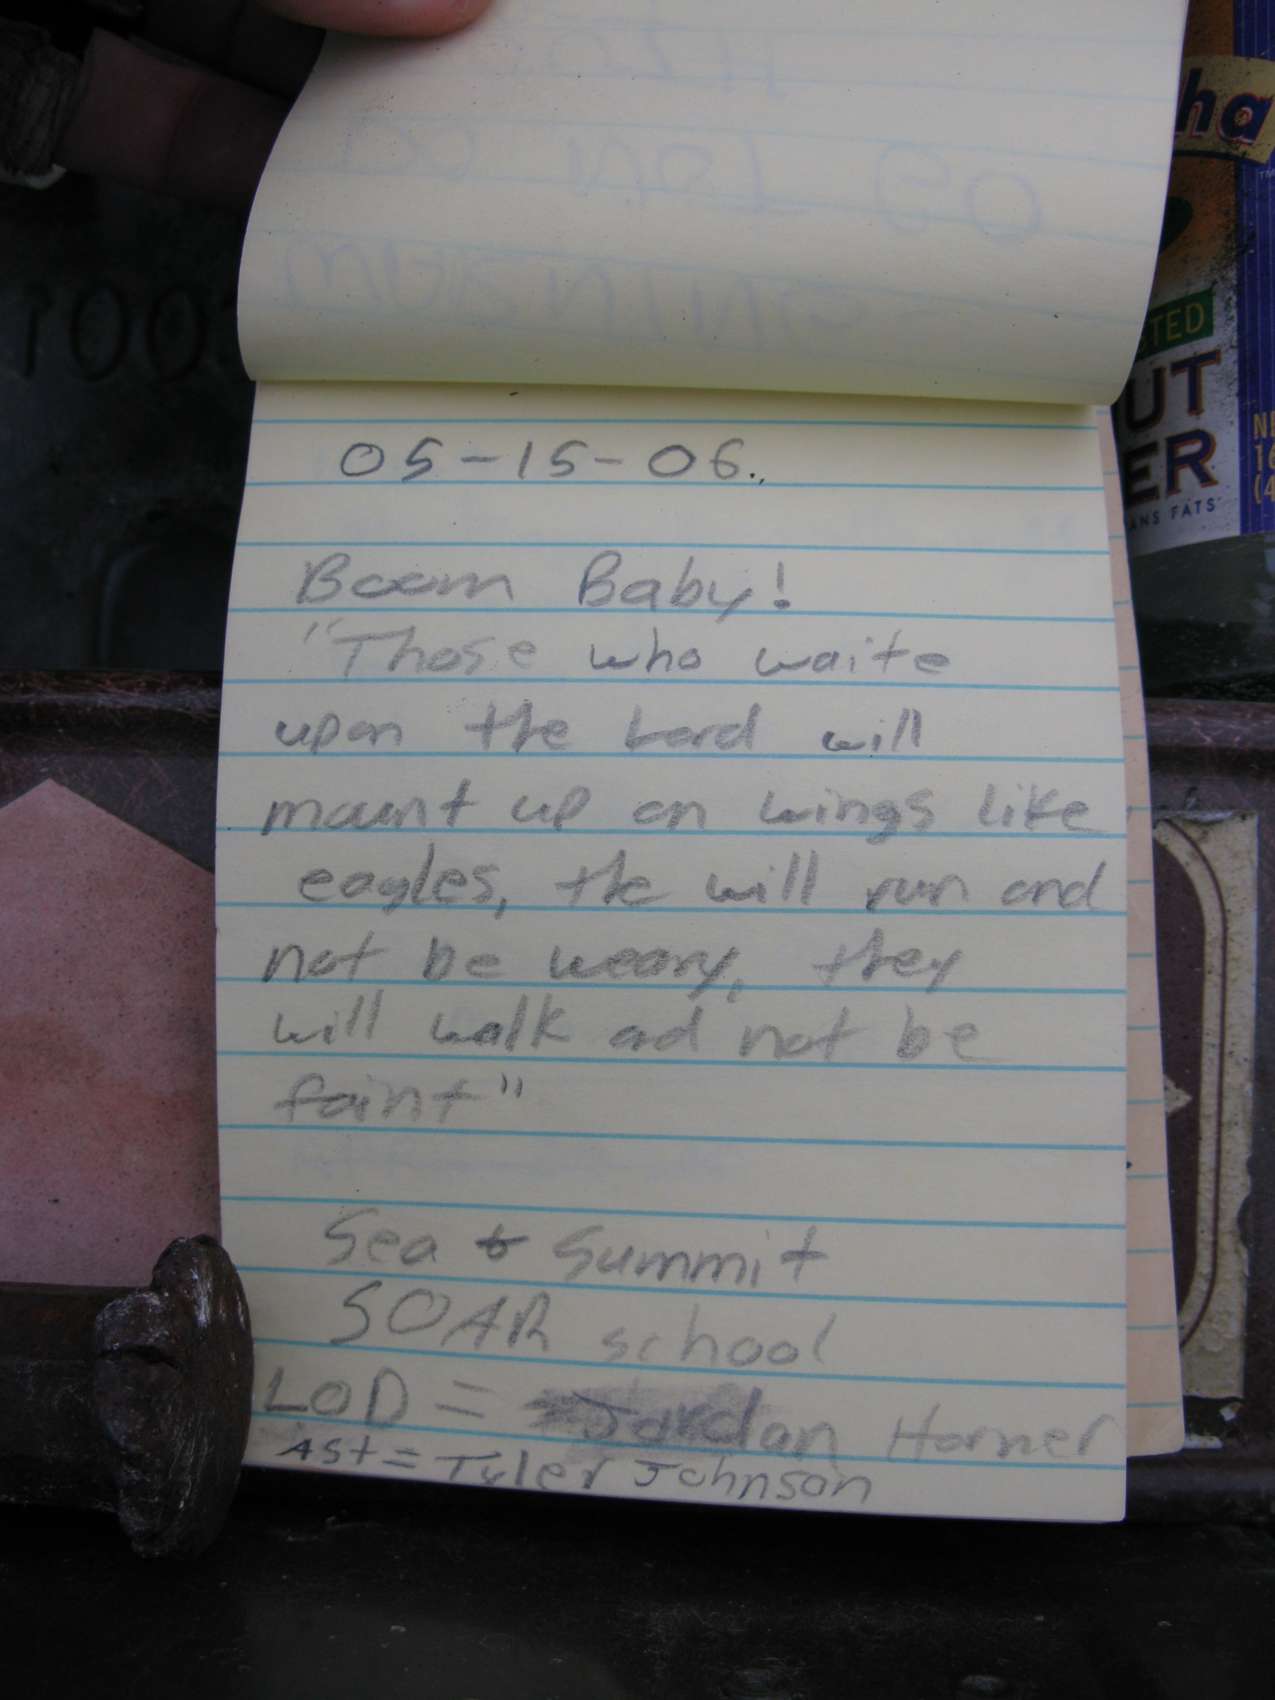 05-15-06.
Boom Baby!
"Those who waite
upon the Lord will
mount up on wings like
eagles, the will run and
not be weary, they
will walk ad not be
faint"
Sea & Summit
SOAR school
LOD = Jordan Horner
Ast = Tyler Johnson
100
ha
TM
TED
UT
ER
ANS FATS